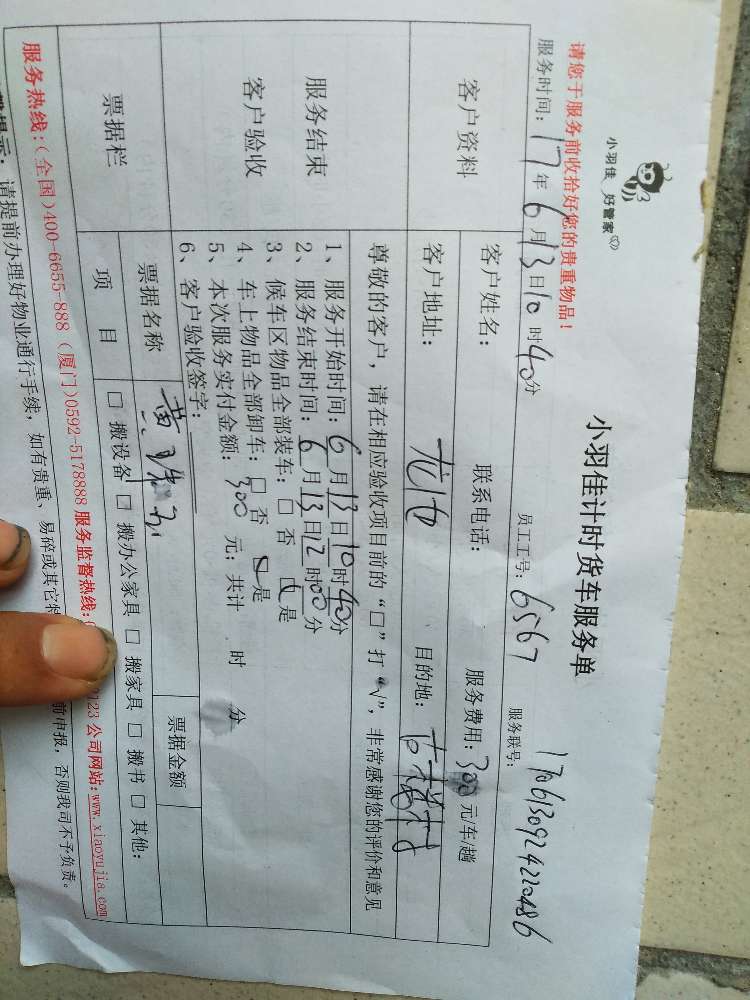 小羽佳 好管家
小羽佳计时货车服务单
请您于服务前收拾好您的贵重物品！
员工工号：6567 服务联号：1706130924220486
服务时间：17年6月13日10时40分
客户资料 客户姓名： 联系电话： 服务费用：300元/车/趟
客户地址： 目的地：
尊敬的客户，请在相应验收项目前的“□”打“√”，非常感谢您的评价和意见
服务结束
客户验收
1、服务开始时间：6月13日10时40分
2、服务结束时间：6月13日12时00分
3、候车区物品全部装车：□否 □是
4、车上物品全部卸车：□否 □是
5、本次服务实付金额：300元；共计 时 分
6、客户验收签字：
票据栏 票据名称 票据金额
项目 □搬设备 □搬办公家具 □搬家具 □搬书 □其他：
服务热线：（全国）400-6655-888（厦门）0592-5178888 服务监督热线： 123 公司网站：www.xiaoyujia.com
提示：请提前办理好物业通行手续，如有贵重、易碎或其它 前申报，否则我司不予负责。